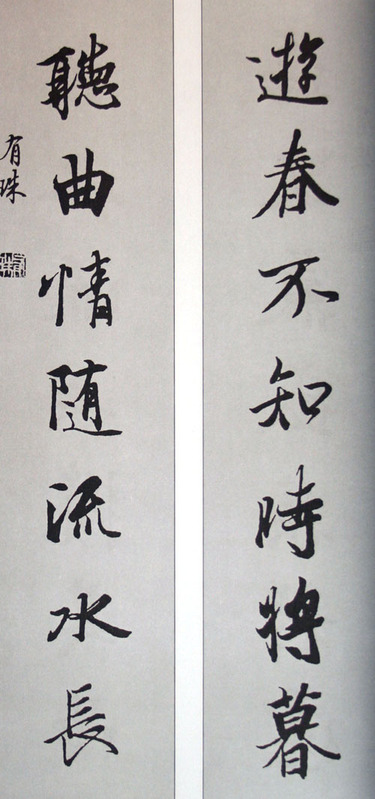 遊春不知時將暮
聽曲情隨流水長
有珠